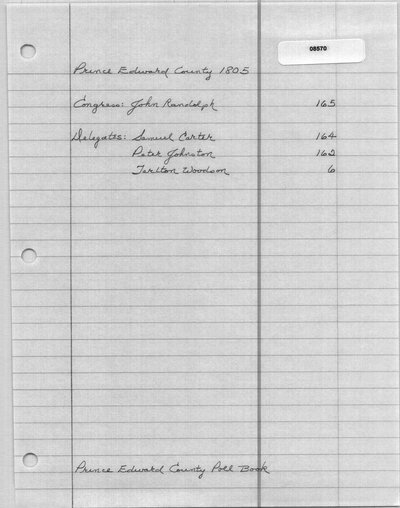 08570
Prince Edward County 1805
Congress: John Randolph 165
Delegates: Samuel Carter 164
Peter Johnston 162
Tarlton Woodson 6
Prince Edward County Poll Book